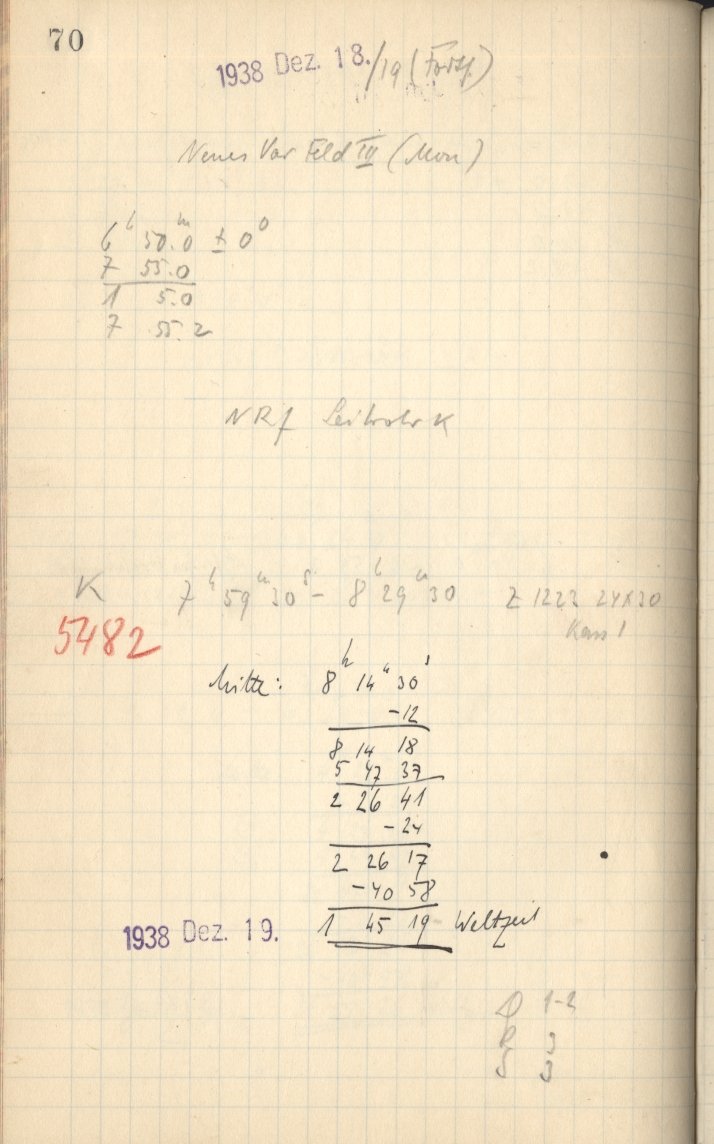 70
1938 Dez. 18./19 (Forts.)
Neues Var Feld III (Mon)
6 h 50.0 m ± 0°
7 55.0
1 5.0
7 55.2
NRf Leitrohr K
K 7 h 59 m 30 s - 8 h 29 m 30 Z 1223 24x30
5482
Mitte: 8 h 14 m 30 s
-12
8 14 18
5 47 37
2 26 41
-24
2 26 17
-40 58
1938 Dez. 19. 1 45 19 Weltzeit
D 1-2
R 3
S 3